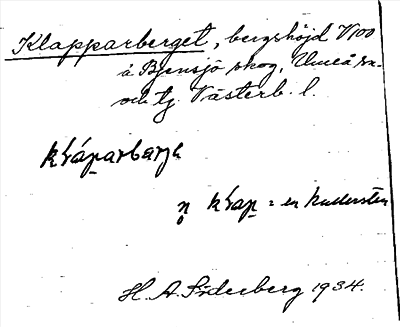 Klapparberget, bergshöjd V100
å Bjensjö skog, Umeå sn.
och tg. Västerb. l.
kḷáparbarjə
n kḷap = en kudersten
H. A. Söderberg 1934.